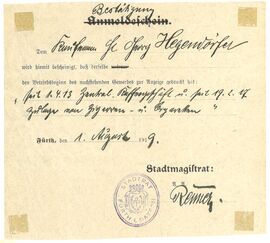 Bestätigung
Anmeldeschein.
Dem Kaufmann Hr Georg Hegendörfer
wird hiermit bescheinigt, daß derselbe
den Betriebsbeginn des nachstehenden Gewerbes zur Anzeige gebracht hat:
"seit 1.4.13 Zentral. Kaffeegeschäft u. seit 19.2.17
Zulage von Zigarren- und Zigaretten"
Fürth, den 1. August 1919.
Stadtmagistrat:
STADTRAT
FÜRTH I. BAYERN